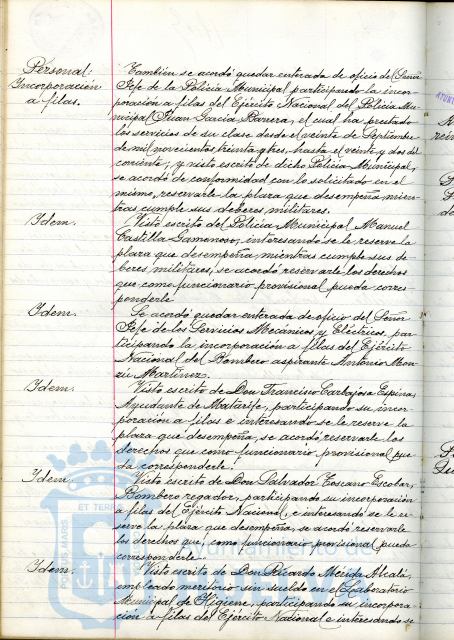 Personal:
Incorporación
a filas.
También se acordó quedar enterada de oficio del Señor
Jefe de la Policía Municipal participando la incor-
poración a filas del Ejército Nacional del Policía Mu-
nicipal Juan García Barera, el cual ha prestado
los servicios de su clase desde el veinte de Septiembre
de mil novecientos treinta y tres, hasta el veinte y dos del
corriente; y visto escrito de dicho Policía Municipal,
se acordó de conformidad con lo solicitado en el
mismo, reservarle la plaza que desempeña mien-
tras cumple sus deberes militares.
Idem.
Visto escrito del Policía Municipal Manuel
Castilla Gamonoso, interesando se le reserve la
plaza que desempeña mientras cumple sus de-
beres militares, se acordó reservarle los derechos
que como funcionario provisional pueda corres-
ponderle
Idem.
Se acordó quedar enterada de oficio del Señor
Jefe de los Servicios Mecánicos y Eléctricos, par-
ticipando la incorporación a filas del Ejército
Nacional del Bombero aspirante Antonio
Martínez.
Idem.
Visto escrito de Don Francisco Carbajosa Espina,
Ayudante de Matarife, participando su incor-
poración a filas e interesando se le reserve la
plaza que desempeña, se acordó reservarle los
derechos que como funcionario provisional pue-
da corresponderle.
Idem.
Visto escrito de Don Salvador Toscano Escobar,
Bombero regador, participando su incorporación
a filas del Ejército Nacional, e interesando se le re-
serve la plaza que desempeña, se acordó reservarle
los derechos que, como funcionario provisional pueda
corresponderle
Idem.
Visto escrito de Don Ricardo Mérida Alcalá,
empleado meritorio sin sueldo en el Laboratorio
Municipal de Higiene, participando su incorpora-
ción a filas del Ejército Nacional e interesando se